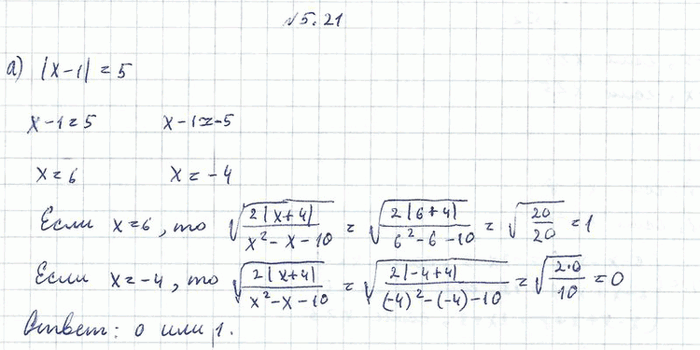 №5.21
а) |x-1| = 5
x-1=5 x-1=-5
x=6 x=-4
Если x=6, то √(2|x+4|/(x²-x-10)) = √(2|6+4|/(6²-6-10)) = √(20/20) = 1
Если x=-4, то √(2|x+4|/(x²-x-10)) = √(2|-4+4|/((-4)²-(-4)-10)) = √(2·0/10) = 0
Ответ: 0 или 1.